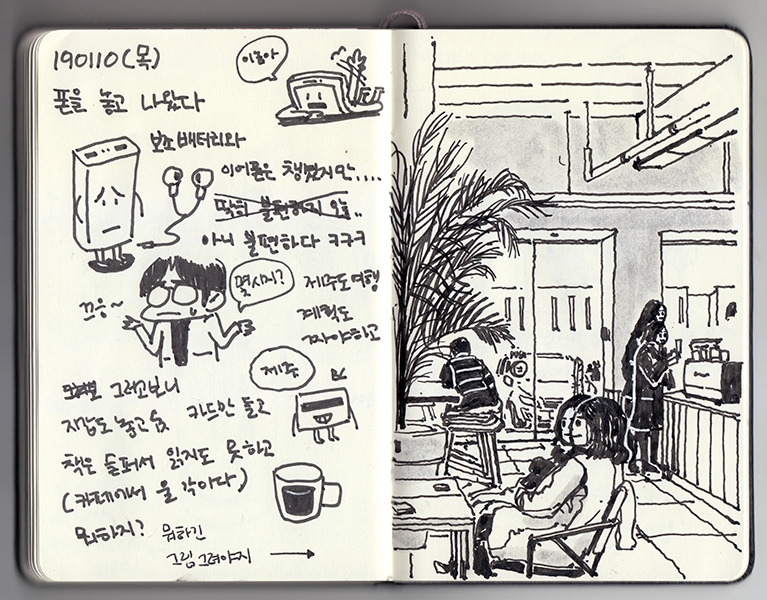 190110(목)
이놈아
폰을 놓고 나왔다
보조배터리와
이어폰은 챙겼지만....
딱히 불편하지 오늘..
아니 불편하다 ㅋㅋㅋ
몇시지?
끄응~
제주도여행
계획도
짜야하고
그러고보니
지갑도 놓고 카드만 들고
책은 슬퍼서 읽지도 못하고
(카페에서 울 각이다)
뭐하지? 뭐하긴
그림 그려야지 →